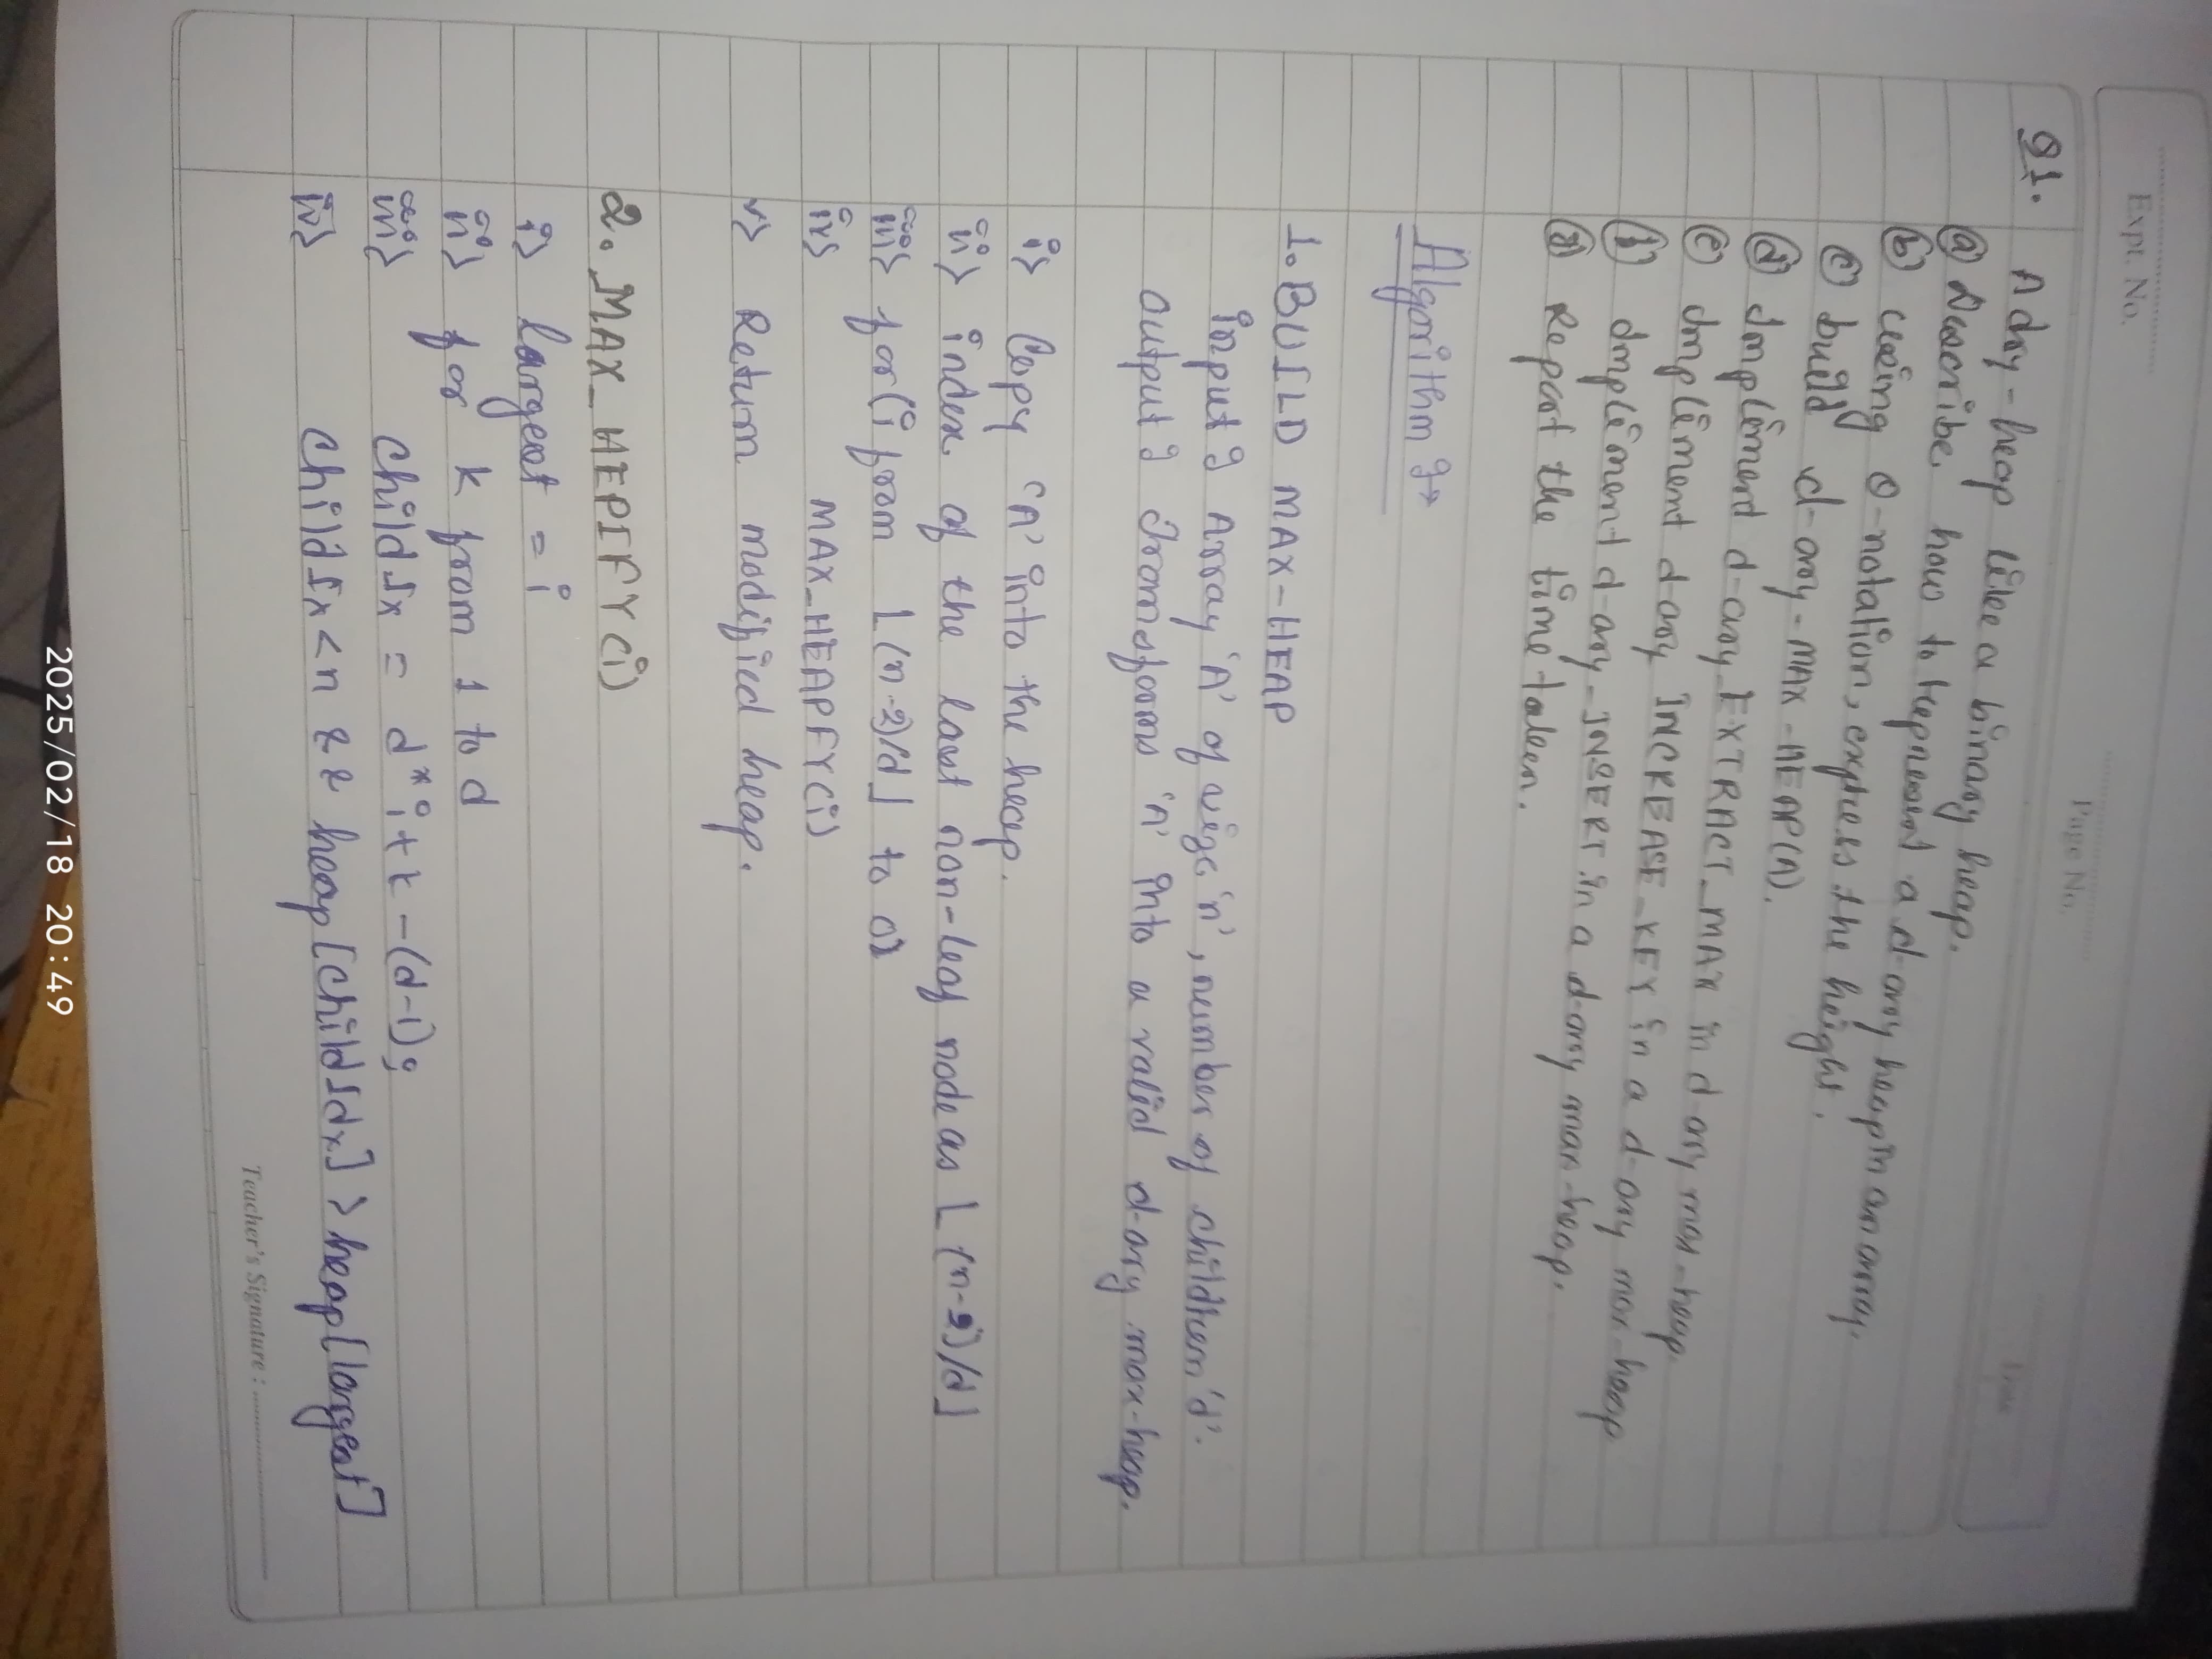 Expt. No.
Page No.
Date
Q1. A dry-heap like a binary heap.
(a) Describe how to represent a d-ary heap in an array.
(b) using Θ-notation, express the height.
(c) build d-ary-MAX-HEAP(A).
(d) Implement d-ary EXTRACT_MAX in d-ary max-heap.
(e) Implement d-ary INCREASE_KEY in a d-ary max-heap
(f) Implement d-ary-INSERT in a d-ary max-heap.
(g) Report the time taken.
Algorithm :→
1. BUILD MAX-HEAP
Input : Array 'A' of size 'n', number of children 'd'.
Output : Transforms 'A' into a valid d-ary max-heap.
i> Copy 'A' into the heap.
ii> index of the last non-leaf node as ⌊(n-2)/d⌋
iii> for(i from ⌊(n-2)/d⌋ to 0)
iv> MAX_HEAPFY(i)
v> Return modified heap.
2. MAX_HEPIFY(i)
i> largest = i
ii> for k from 1 to d
iii> childIx = d*i+k-(d-1);
iv> childIx<n && heap[childIdx] > heap[largest]
Teacher's Signature :
2025/02/18 20:49